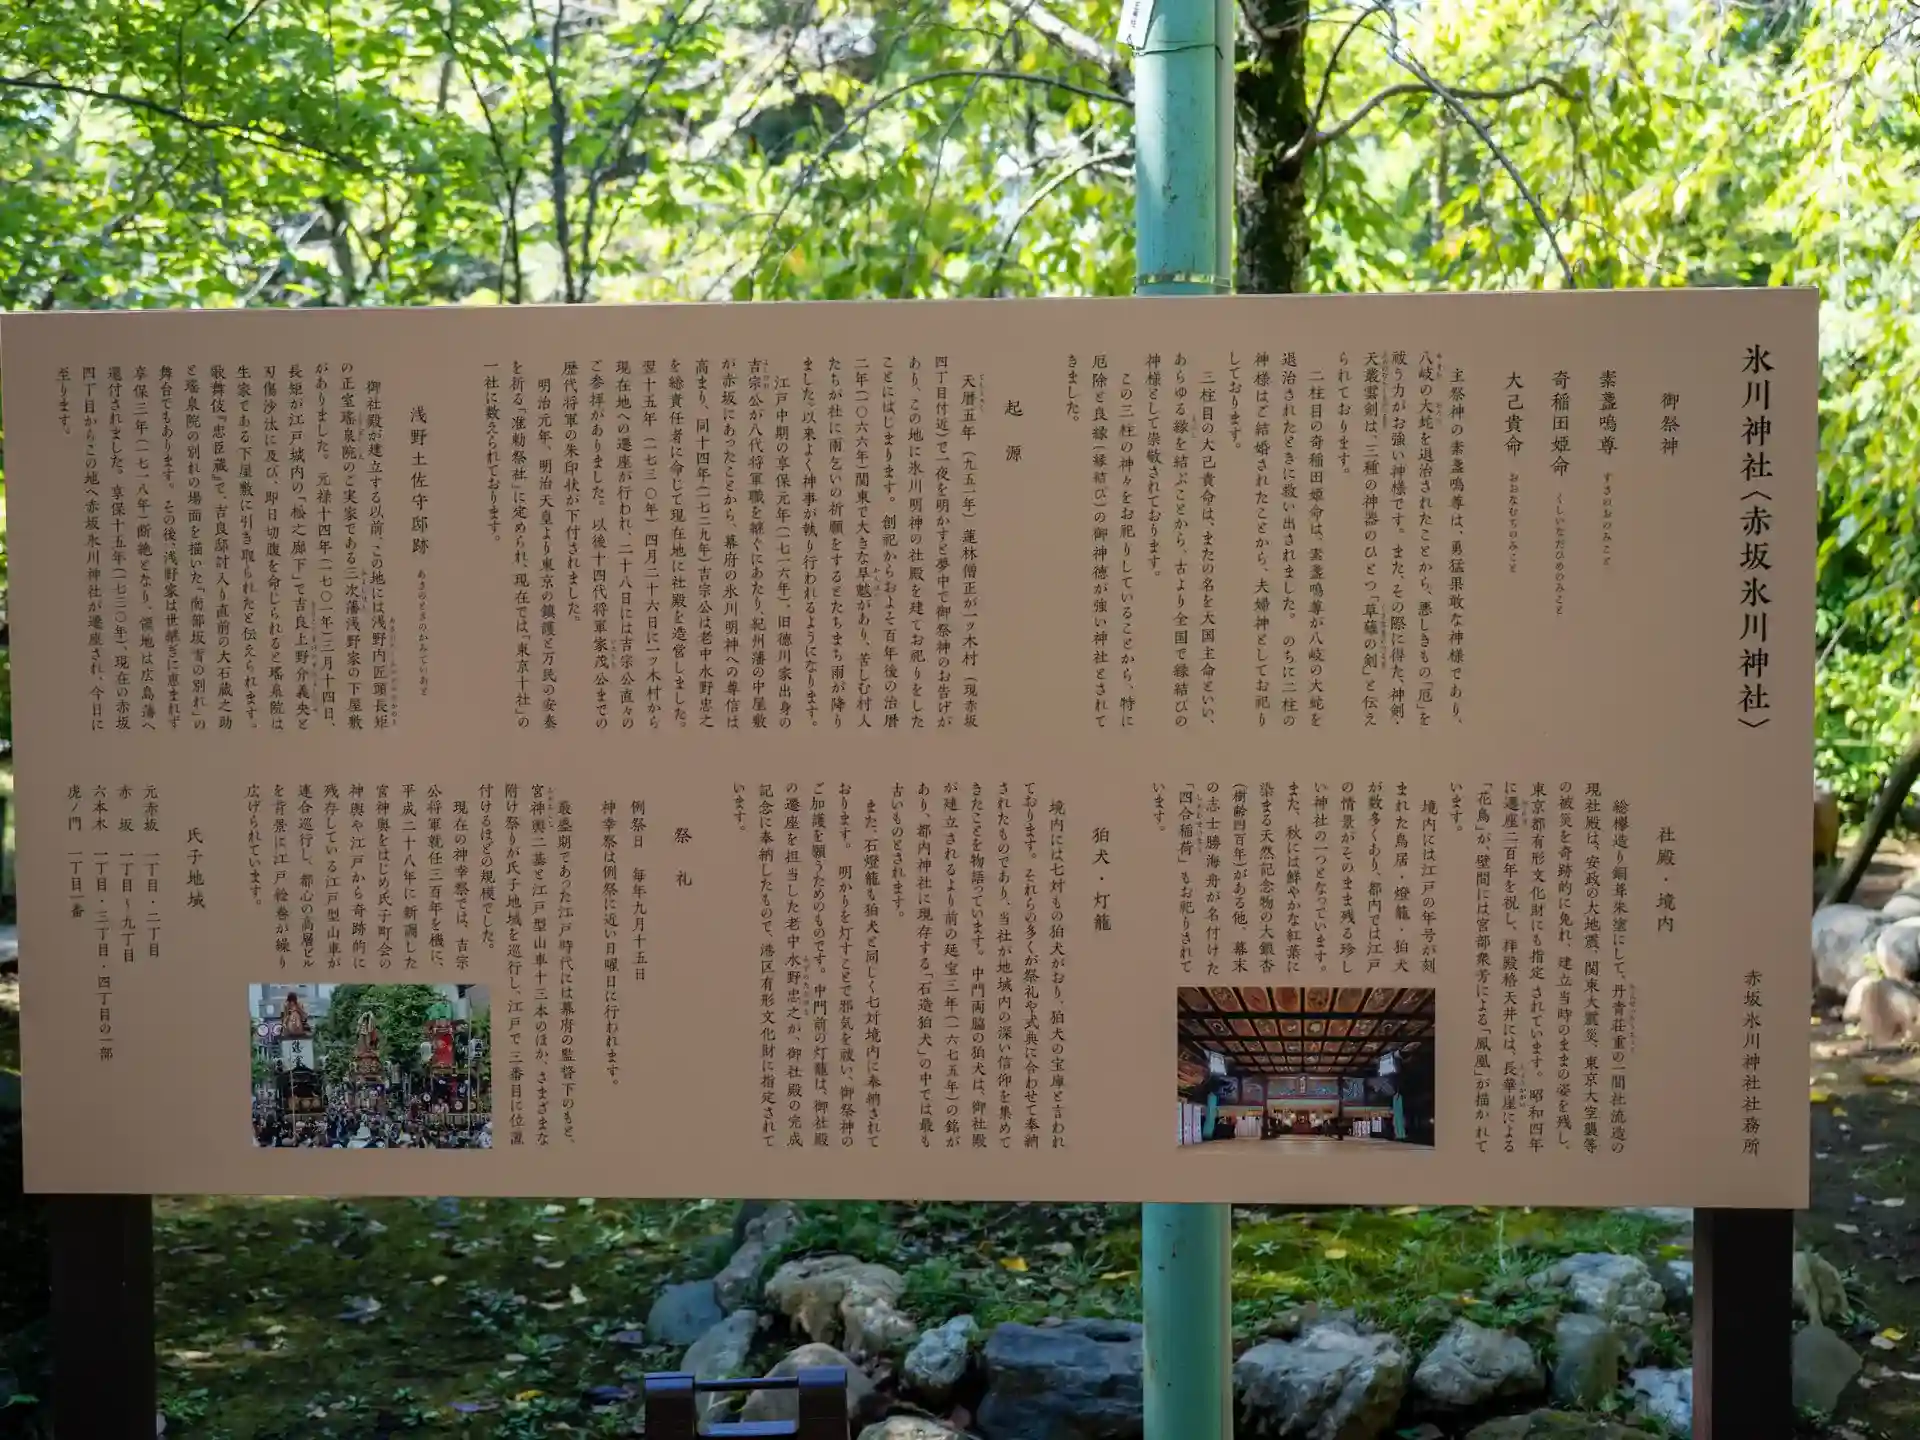 氷川神社〈赤坂氷川神社〉
御祭神
素盞嗚尊 すさのおのみこと
奇稲田姫命 くしいなだひめのみこと
大己貴命 おおなむぢのみこと
主祭神の素盞嗚尊は、勇猛果敢な神様であり、
八岐の大蛇を退治されたことから、悪しきもの「厄」を
祓う力がお強い神様です。また、その際に得た、神剣・
天叢雲剣は、三種の神器のひとつ「草薙の剣」と伝え
られております。
二柱目の奇稲田姫命は、素盞嗚尊が八岐の大蛇を
退治されたときに救い出されました。のちに二柱の
神様はご結婚されたことから、夫婦神としてお祀り
しております。
三柱目の大己貴命は、またの名を大国主命といい、
あらゆる縁を結ぶことから、古より全国で縁結びの
神様として崇敬されております。
この三柱の神々をお祀りしていることから、特に
厄除と良縁(縁結び)の御神徳が強い神社とされて
きました。
起源
天暦五年(九五一年)蓮林僧正が一ッ木村(現赤坂
四丁目付近)で一夜を明かすと夢中で御祭神のお告げが
あり、この地に氷川明神の社殿を建てお祀りをした
ことにはじまります。創祀からおよそ百年後の治暦
二年(一〇六六年)関東で大きな旱魃があり、苦しむ村人
たちが社に雨乞いの祈願をするとたちまち雨が降り
ました。以来よく神事が執り行われるようになります。
江戸中期の享保元年(一七一六年)、旧徳川家出身の
吉宗公が八代将軍職を継ぐにあたり、紀州藩の中屋敷
が赤坂にあったことから、幕府の氷川明神への尊信は
高まり、同十四年(一七二九年)吉宗公は老中水野忠之
を総責任者に命じて現在地に社殿を造営しました。
翌十五年(一七三〇年)四月二十六日に一ッ木村から
現在地への遷座が行われ、二十八日には吉宗公直々の
ご参拝がありました。以後十四代将軍家茂公までの
歴代将軍の朱印状が下付されました。
明治元年、明治天皇より東京の鎮護と万民の安泰
を祈る「准勅祭社」に定められ、現在では「東京十社」の
一社に数えられております。
浅野土佐守邸跡 あさのとさのかみていあと
御社殿が建立する以前、この地には浅野内匠頭長矩
の正室瑤泉院のご実家である三次藩浅野家の下屋敷
がありました。元禄十四年(一七〇一年)三月十四日、
長矩が江戸城内の「松之廊下」で吉良上野介義央と
刃傷沙汰に及び、即日切腹を命じられると瑤泉院は
生家である下屋敷に引き取られたと伝えられます。
歌舞伎『忠臣蔵』で、吉良邸討入り直前の大石蔵之助
と瑤泉院の別れの場面を描いた「南部坂雪の別れ」の
舞台でもあります。その後、浅野家は世継ぎに恵まれず
享保三年(一七一八年)断絶となり、領地は広島藩へ
還付されました。享保十五年(一七三〇年)、現在の赤坂
四丁目からこの地へ赤坂氷川神社が遷座され、今日に
至ります。
社殿・境内
赤坂氷川神社社務所
総欅造り銅葺朱塗にして、丹青荘重の一間社流造の
現社殿は、安政の大地震、関東大震災、東京大空襲等
の被災を奇跡的に免れ、建立当時のままの姿を残し、
東京都有形文化財にも指定されています。昭和四年
に遷座二百年を祝し、拝殿格天井には、長華崖による
「花鳥」が、壁間には宮部衆芳による「鳳凰」が描かれて
います。
境内には江戸の年号が刻
まれた鳥居・燈籠・狛犬
が数多くあり、都内では江戸
の情景がそのまま残る珍し
い神社の一つとなっています。
また、秋には鮮やかな紅葉に
染まる天然記念物の大銀杏
(樹齢四百年)がある他、幕末
の志士勝海舟が名付けた
「四合稲荷」もお祀りされて
います。
狛犬・灯籠
境内には七対もの狛犬がおり、狛犬の宝庫と言われ
ております。それらの多くが祭礼や式典に合わせて奉納
されたものであり、当社が地域内の深い信仰を集めて
きたことを物語っています。中門両脇の狛犬は、御社殿
が建立されるより前の延宝三年(一六七五年)の銘が
あり、都内神社に現存する「石造狛犬」の中では最も
古いものとされます。
また、石燈籠も狛犬と同じく七対境内に奉納されて
おります。明かりを灯すことで邪気を祓い、御祭神の
ご加護を願うためのものです。中門前の灯籠は、御社殿
の遷座を担当した老中水野忠之が、御社殿の完成
記念に奉納したもので、港区有形文化財に指定されて
います。
祭礼
例祭日 毎年九月十五日
神幸祭は例祭に近い日曜日に行われます。
最盛期であった江戸時代には幕府の監督下のもと、
宮神輿二基と江戸型山車十三本のほか、さまざまな
附け祭りが氏子地域を巡行し、江戸で三番目に位置
付けるほどの規模でした。
現在の神幸祭では、吉宗
公将軍就任三百年を機に、
平成二十八年に新調した
宮神輿をはじめ氏子町会の
神輿や江戸から奇跡的に
残存している江戸型山車が
連合巡行し、都心の高層ビル
を背景に江戸絵巻が繰り
広げられています。
氏子地域
元赤坂 一丁目・二丁目
赤坂 一丁目〜九丁目
六本木 一丁目・三丁目・四丁目の一部
虎ノ門 一丁目一番